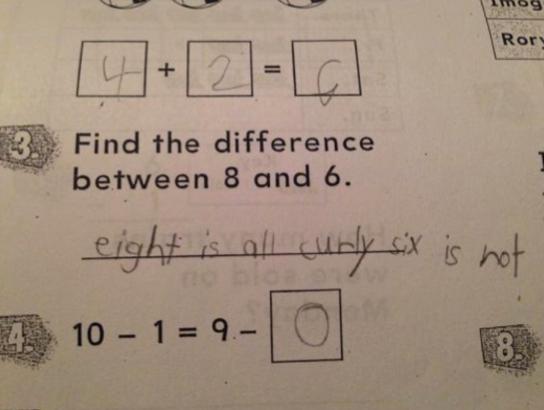 Imog
Rory
4 + 2 = 6
3. Find the difference
between 8 and 6.
eight is all curly six is not
4. 10 - 1 = 9 - 0
8.